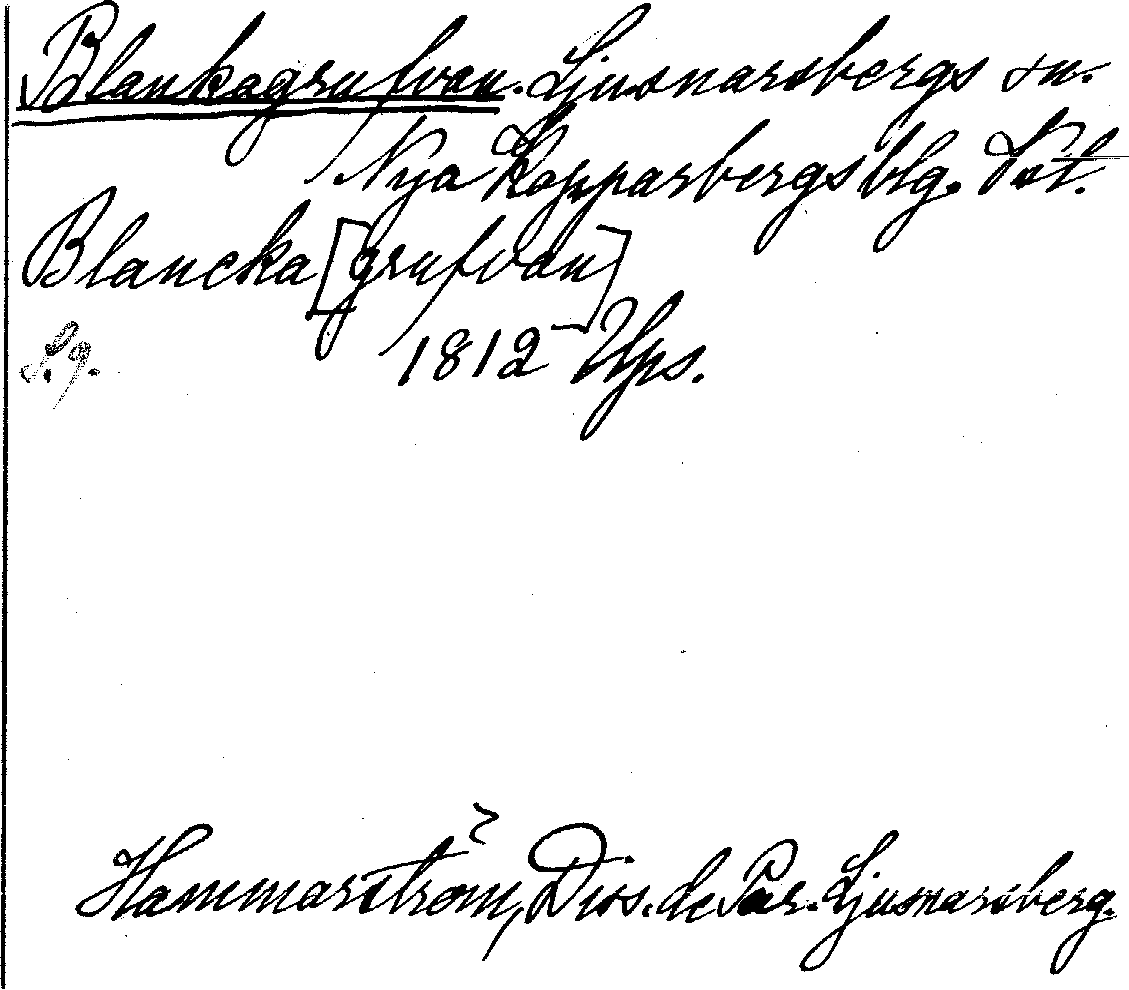 Blankagrufvan. Ljusnarsbergs sn.
Nya Kopparbergs blg. Vst.
Blancka [grufvan]
S. 9. 1812 Ups.
Hammarström, Diss. de Par. Ljusnarsberg.